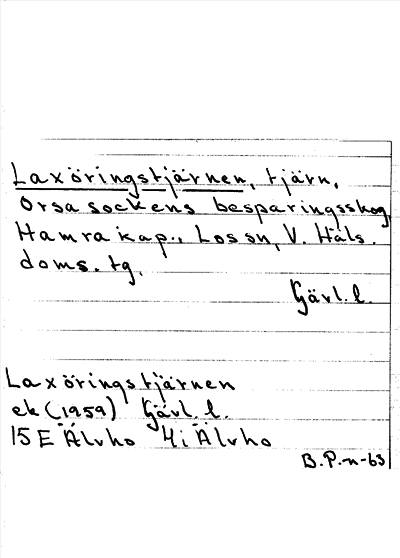 Laxöringstjärnen, tjärn,
Orsa sockens besparingsskog,
Hamra kap., Los sn, V. Häls.
doms. tg.
Gävl. l.
Laxöringstjärnen
ek (1959) Gävl. l.
15 E Älvho 4i Älvho
B.P.-n-63